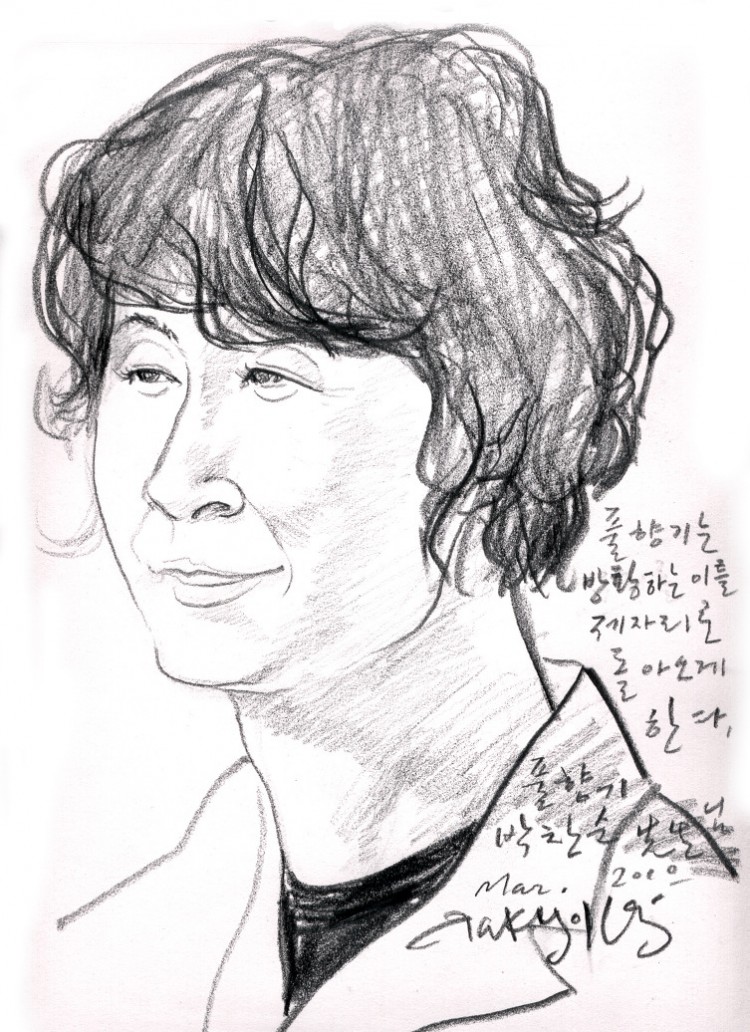 풀향기는
방황하는 이를
제자리로
돌아오게
한다,
풀향기
박찬순 님
Mar. 2010